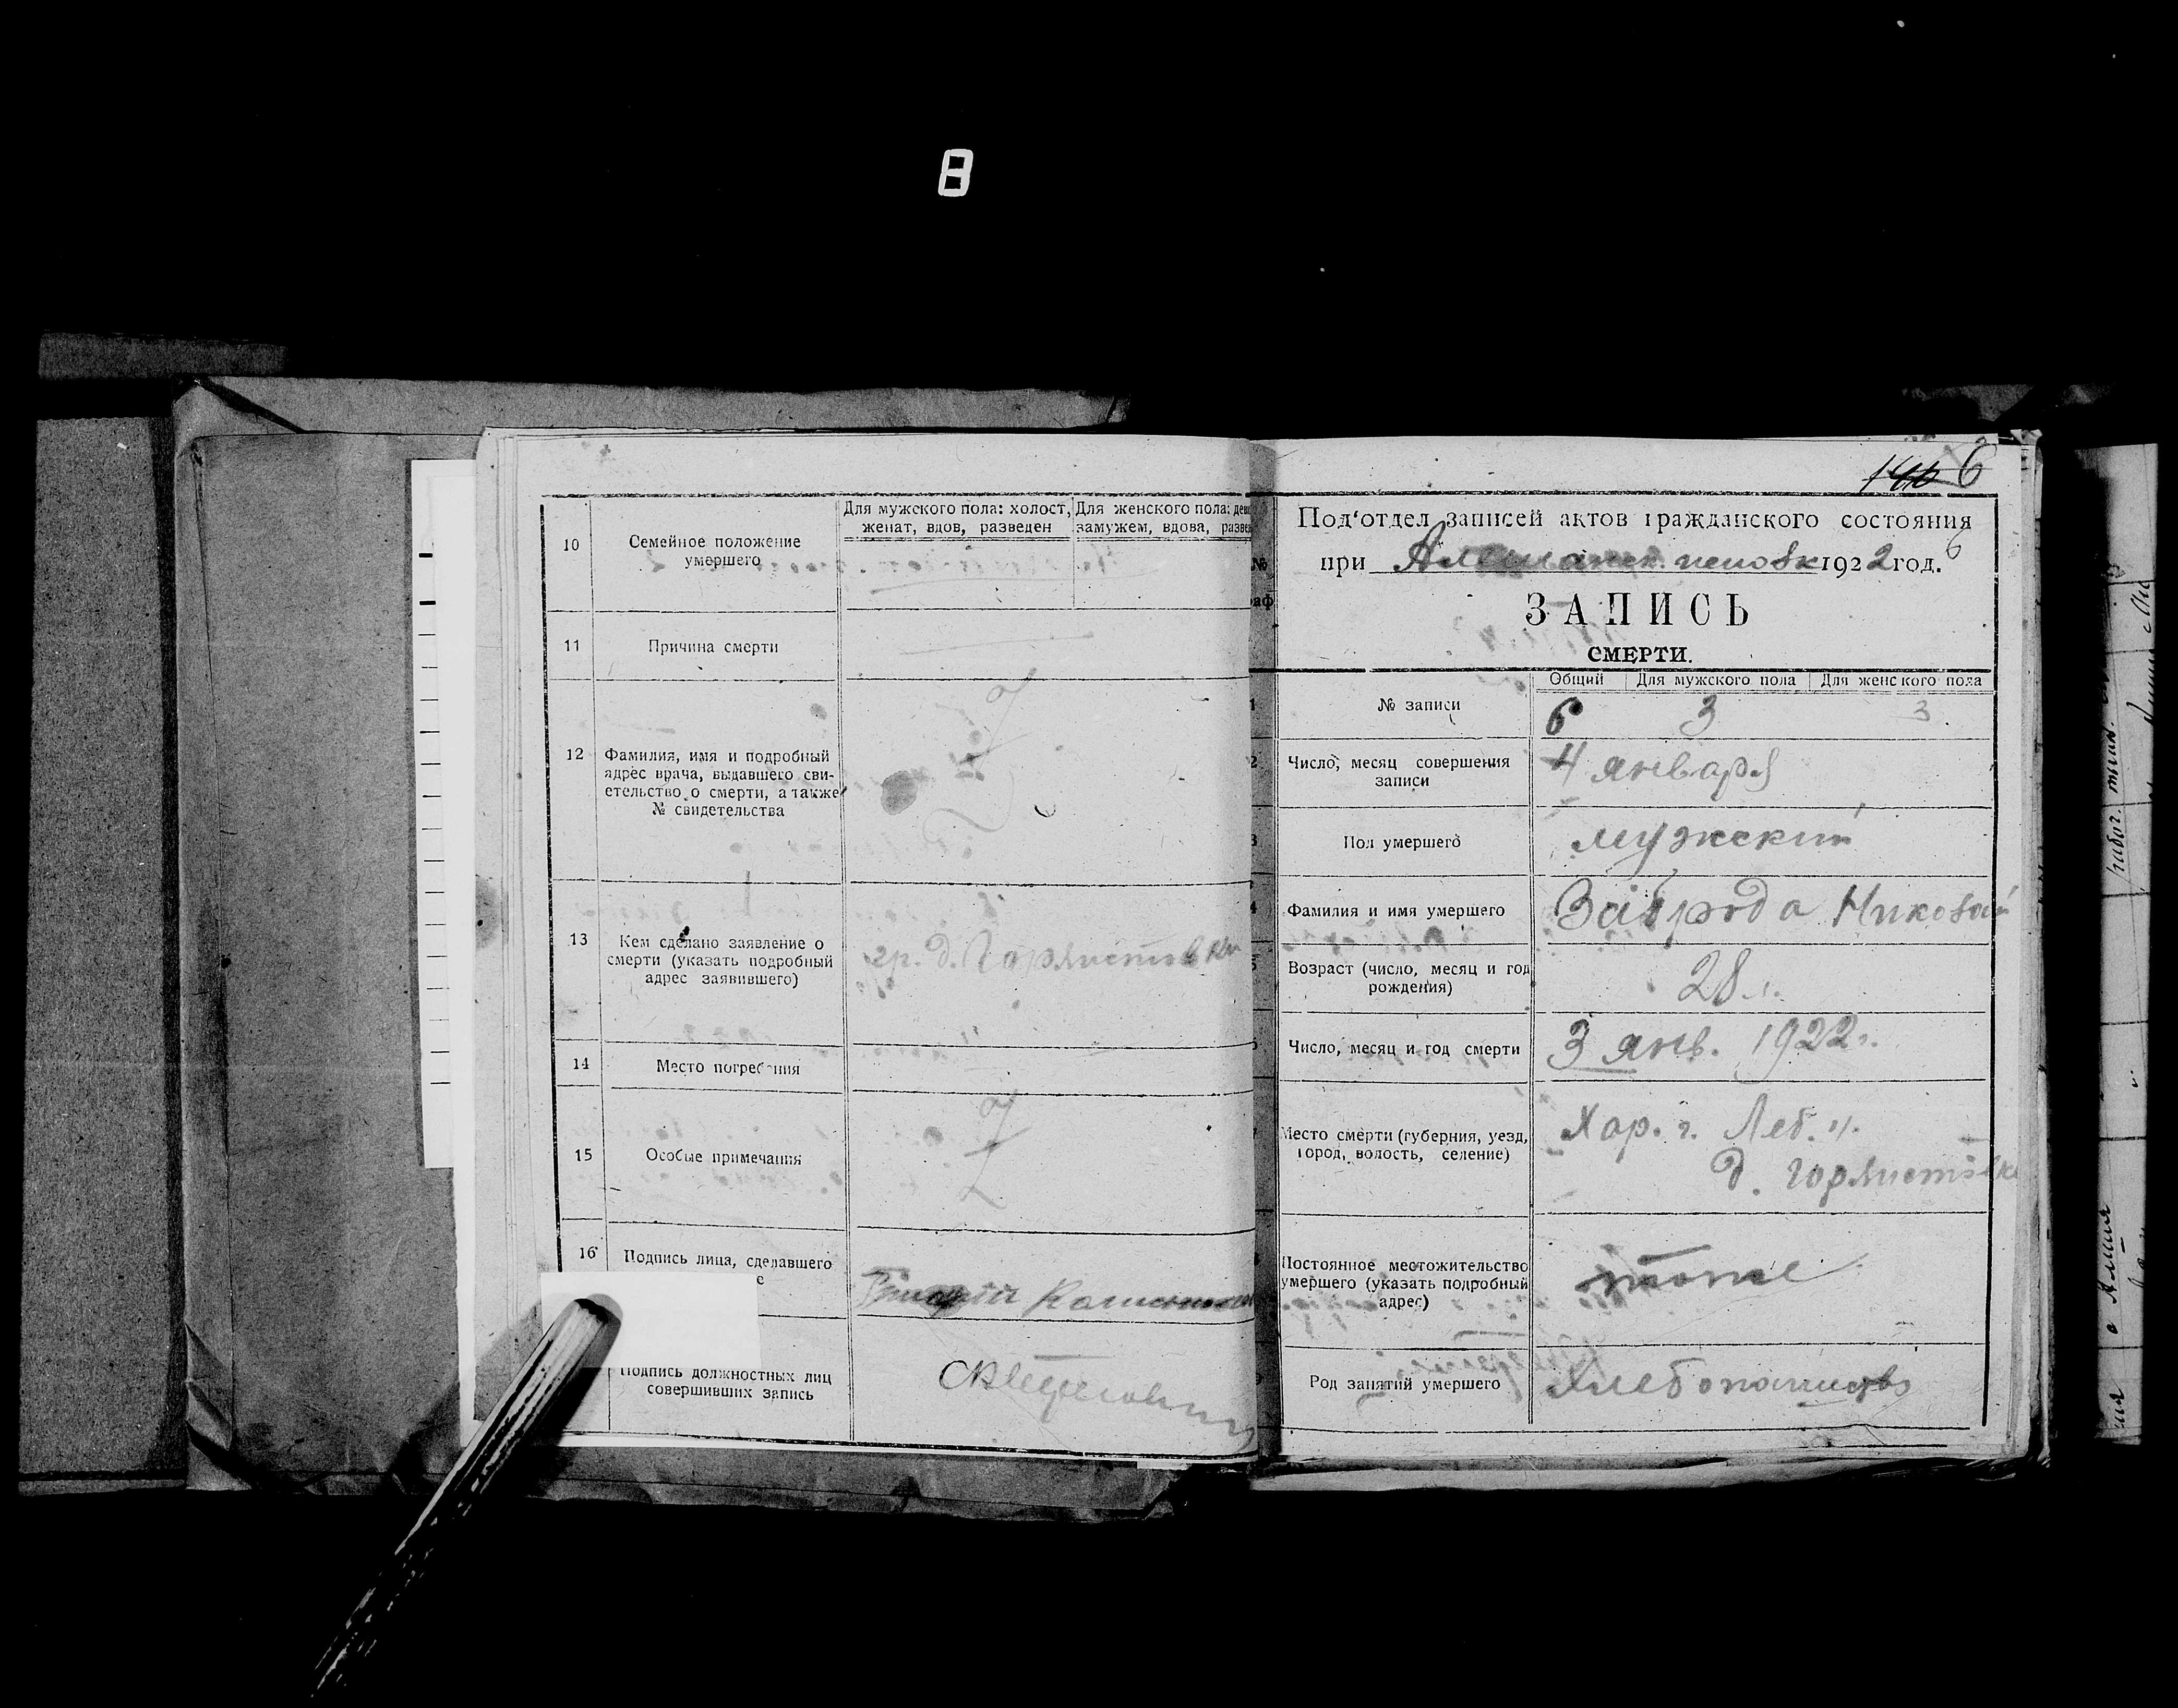 8
10
Семейное положение
умершего
Для мужского пола: холост,
женат, вдов, разведен
Для женского пола: дев
замужем, вдова, разве
11
Причина смерти
12
Фамилия, имя и подробный
адрес врача, выдавшего сви-
етельство о смерти, а также
№ свидетельства
13
Кем сделано заявление о
смерти (указать подробный
адрес заявившего)
гр. д. Горлистовки
14
Место погребения
15
Особые примечания
16
Подпись лица, сделавшего
е
Подпись должностных лиц
совершивших запись
6
Под‘отдел записей актов гражданского состояния
при 1922 год.
6
ЗАПИСЬ
СМЕРТИ.
№
аф
Общий Для мужского пола Для женского пола
1 № записи 6 3 3
2 Число, месяц совершения
записи
4 января
3 Пол умершего мужский
4 Фамилия и имя умершего Заброда Николай
5 Возраст (число, месяц и год
рождения)
28 л.
6 Число, месяц и год смерти 3 янв. 1922 г.
Место смерти (губерния, уезд,
город, волость, селение)
Хар. г. Леб. у.
д. Горлистовка
Постоянное местожительство
умершего (указать подробный
адрес)
тоже
Род занятий умершего